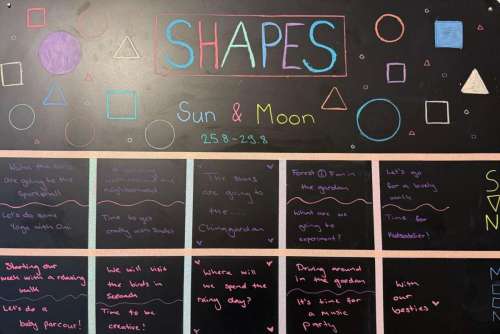 SHAPES
Sun & Moon
25.8 - 29.8
are going to the
Let's do some
Yoga with
neighborhood
Time to get
crafty with
The stars
are going to
the....
Climagarden
Forest Fun in
the garden
What are we
going to
experiment?
Let's go
for a lovely
walk
Time for
SUN
Starting our
week with a relaxing
walk
Let's do a
baby parcour!
We will visit
the birds in
Seconds
Time to be
creative!
Where will
we spend the
rainy day?
Driving around
in the garden
It's time for
a music
party
With
our
besties